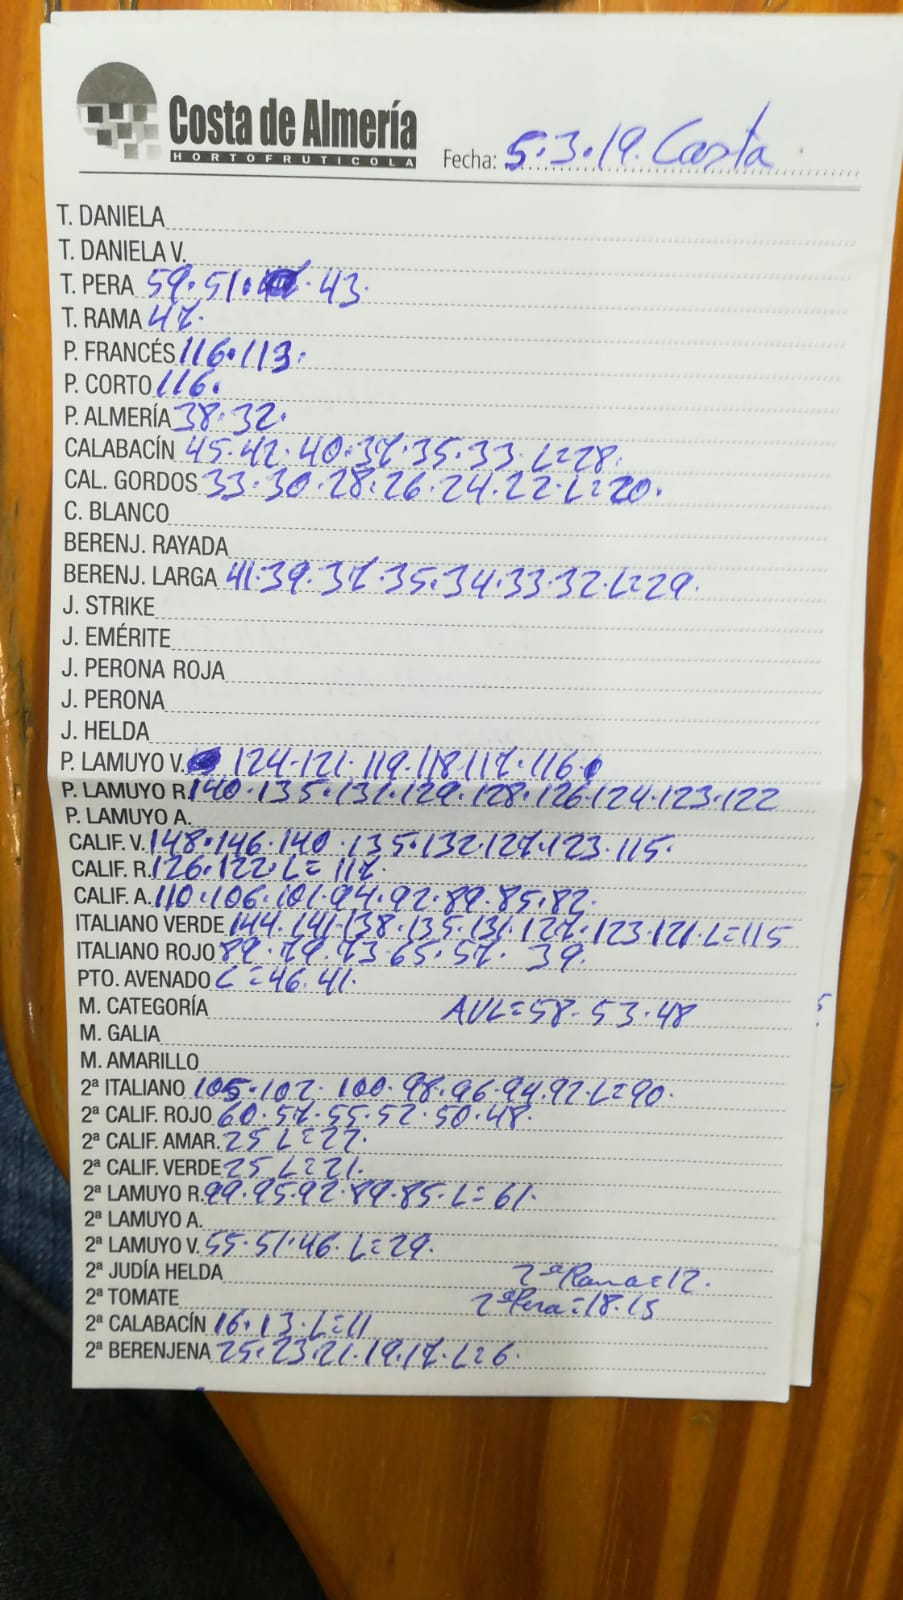 Costa de Almería
HORTOFRUTICOLA
Fecha: 5.3.19. Costa
T. DANIELA
T. DANIELA V.
T. PERA 59.51. .43.
T. RAMA 47.
P. FRANCÉS 116.113.
P. CORTO 116.
P. ALMERÍA 38.32.
CALABACÍN 45.42.40.37.35.33.L=28.
CAL. GORDOS 33.30.28.26.24.22.L=20.
C. BLANCO
BERENJ. RAYADA
BERENJ. LARGA 41.39.37.35.34.33.32.L=29.
J. STRIKE
J. EMÉRITE
J. PERONA ROJA
J. PERONA
J. HELDA
P. LAMUYO V. 124.121.119.118.117.116.
P. LAMUYO R. 140.135.131.129.128.126.124.123.122
P. LAMUYO A.
CALIF. V. 148.146.140.135.132.127.123.115.
CALIF. R. 126.122.L=117.
CALIF. A. 110.106.101.94.92.89.85.82.
ITALIANO VERDE 144.141.138.135.131.127.123.121.L=115
ITALIANO ROJO 89.79.73.65.57. 39.
PTO. AVENADO L=46.41.
M. CATEGORÍA AVL=58.53.48
M. GALIA
M. AMARILLO
2ª ITALIANO 105.102.100.98.96.94.92.L=90.
2ª CALIF. ROJO 60.57.55.52.50.48.
2ª CALIF. AMAR. 25 L=22.
2ª CALIF. VERDE 25 L=21.
2ª LAMUYO R. 99.95.92.89.85.L=61.
2ª LAMUYO A.
2ª LAMUYO V. 55.51.46.L=29.
2ª JUDÍA HELDA 2ªRama=12.
2ª TOMATE 2ªPera=18.15
2ª CALABACÍN 16.13.L=11
2ª BERENJENA 25.23.21.19.17.L=6.